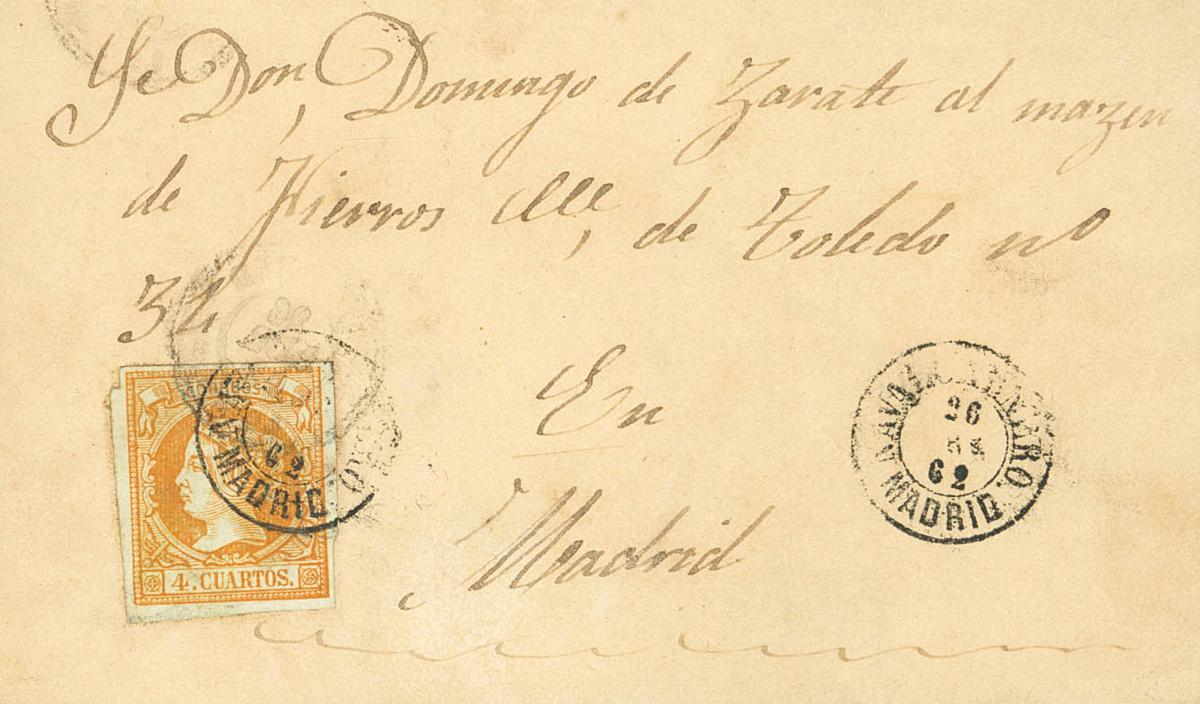 Sr Don, Domingo de Zarate al mazen
de Hierros Clle, de Toledo nº
34
En
Madrid
4. CUARTOS.
62
MADRID
26
62
MADRID